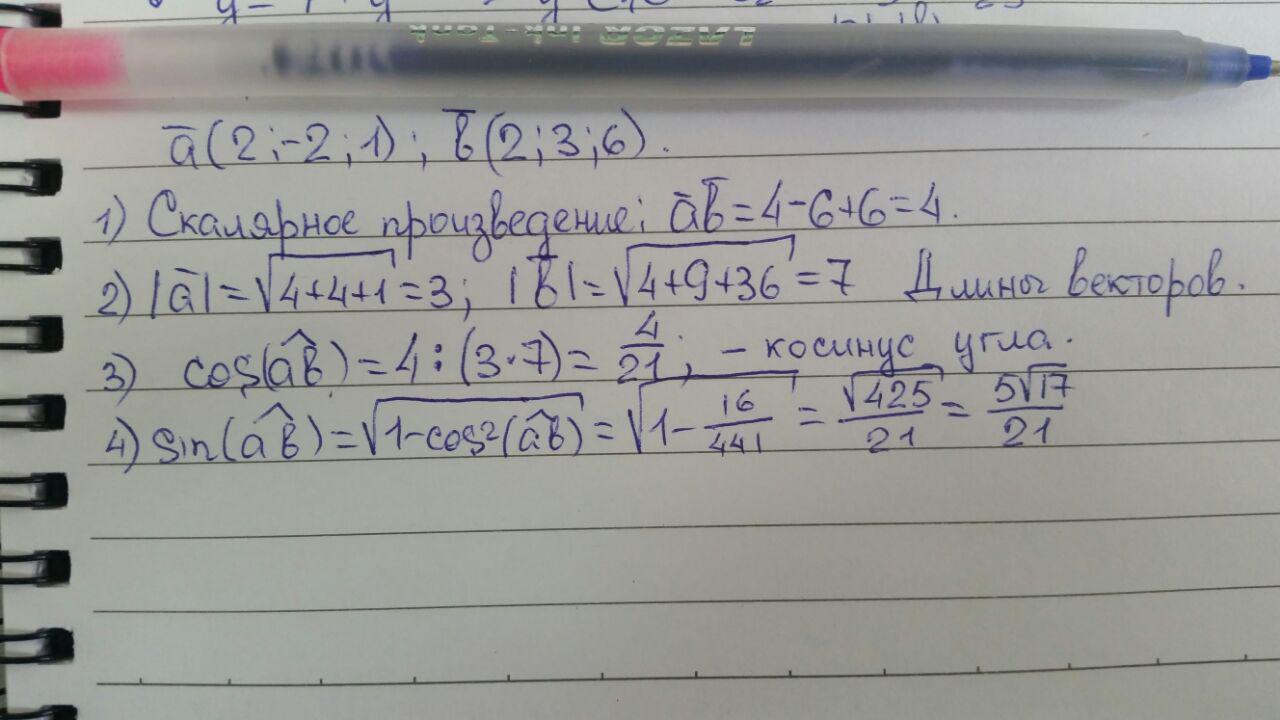 LAZOR Ink-Tank
a̅(2;-2;1); b̅(2;3;6).
1) Скалярное произведение: a̅b̅=4-6+6=4.
2) |a̅|=√4+4+1=3; |b̅|=√4+9+36=7 Длины векторов.
3) cos(a͡b)=4:(3·7)=4/21; - косинус угла.
4) sin(a͡b)=√1-cos²(a͡b)=√1-16/441=√425/21=5√17/21